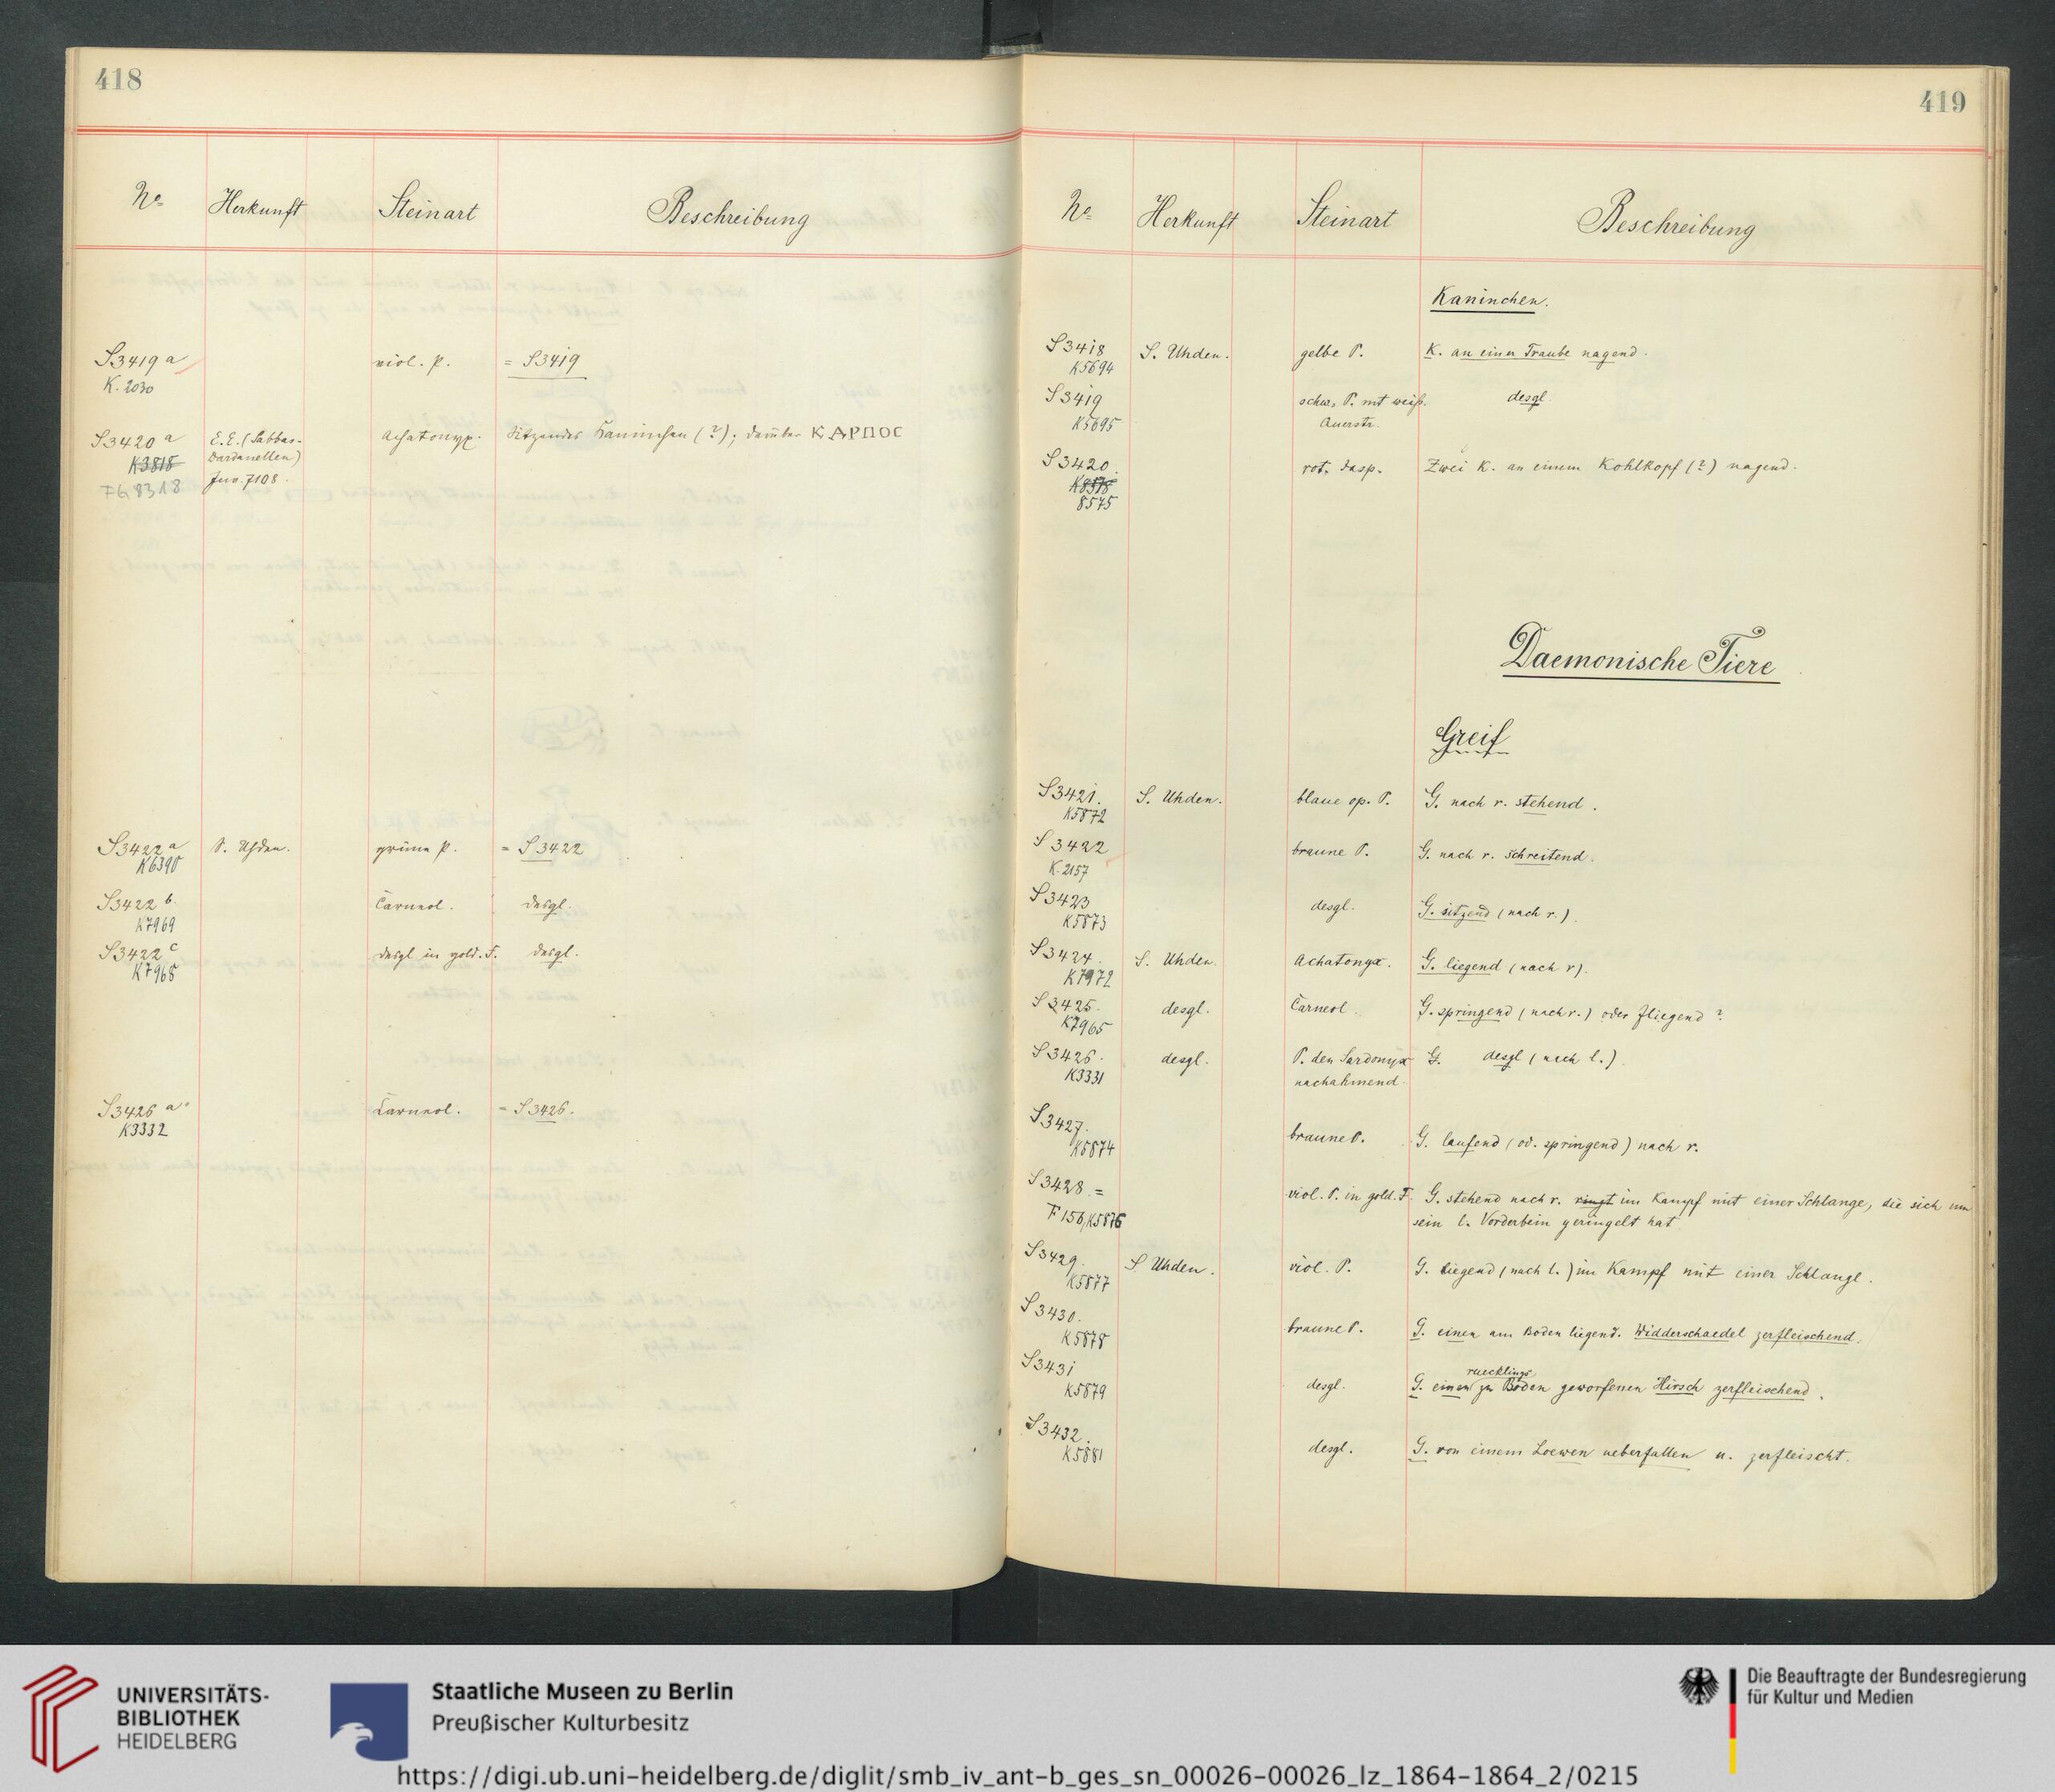 418
No Herkunft Steinart Beschreibung
S3419 a viol. P. = S3419
K. 2030
S3420 a E.E. (Sabbas- Achatonyx. Sitzendes Kaninchen (?); darüber ΚΑΡΠΟC
K3818 Dardanellen)
FG 8318 Inv. 7108.
S3422 a S. Uhden. grüne P. = S3422
K6390
S3422 b. Carneol. desgl.
K7969
S3422 c desgl in gold. F. desgl.
K7968
S3426 a Carneol. = S3426.
K3332
419
No Herkunft Steinart Beschreibung
Kaninchen.
S3418 S. Uhden. gelbe P. K. an einer Traube nagend.
K5694
S3419 schw. P. mit weiß. desgl.
K5695 Querstr.
S3420. rot. Jasp. Zwei K. an einem Kohlkopf (?) nagend.
K8575
8575
Daemonische Tiere
Greif
S3421. S. Uhden. blaue op. P. G. nach r. stehend.
K5872
S3422 braune P. G. nach r. schreitend.
K. 2157
S3423 desgl. G. sitzend (nach r.).
K5873
S3424. S. Uhden. Achatonyx. G. liegend (nach r).
K7972
S3425. desgl. Carneol. G. springend (nach r.) oder fliegend?
K7965
S3426. desgl. P. den Sardonyx G. desgl (nach l.)
K3331 nachahmend.
S3427. braune P. G. laufend (od. springend) nach r.
K5874
S3428 = viol. P. in gold. F. G. stehend nach r. ringt im Kampf mit einer Schlange, die sich um
F 156, K5876 sein l. Vorderbein geringelt hat
S3429. S Uhden. viol. P. G. liegend (nach l.) im Kampf mit einer Schlange.
K5877
S3430. braune P. G. einen am Boden liegend. Widderschaedel zerfleischend.
K5878
ruecklings
S3431 desgl. G. einen zu Boden geworfenen Hirsch zerfleischend.
K5879
S3432. desgl. G. von einem Loewen ueberfallen u. zerfleischt.
K5881
UNIVERSITÄTS-
BIBLIOTHEK
HEIDELBERG
Staatliche Museen zu Berlin
Preußischer Kulturbesitz
Die Beauftragte der Bundesregierung
für Kultur und Medien
https://digi.ub.uni-heidelberg.de/diglit/smb_iv_ant-b_ges_sn_00026-00026_lz_1864-1864_2/0215